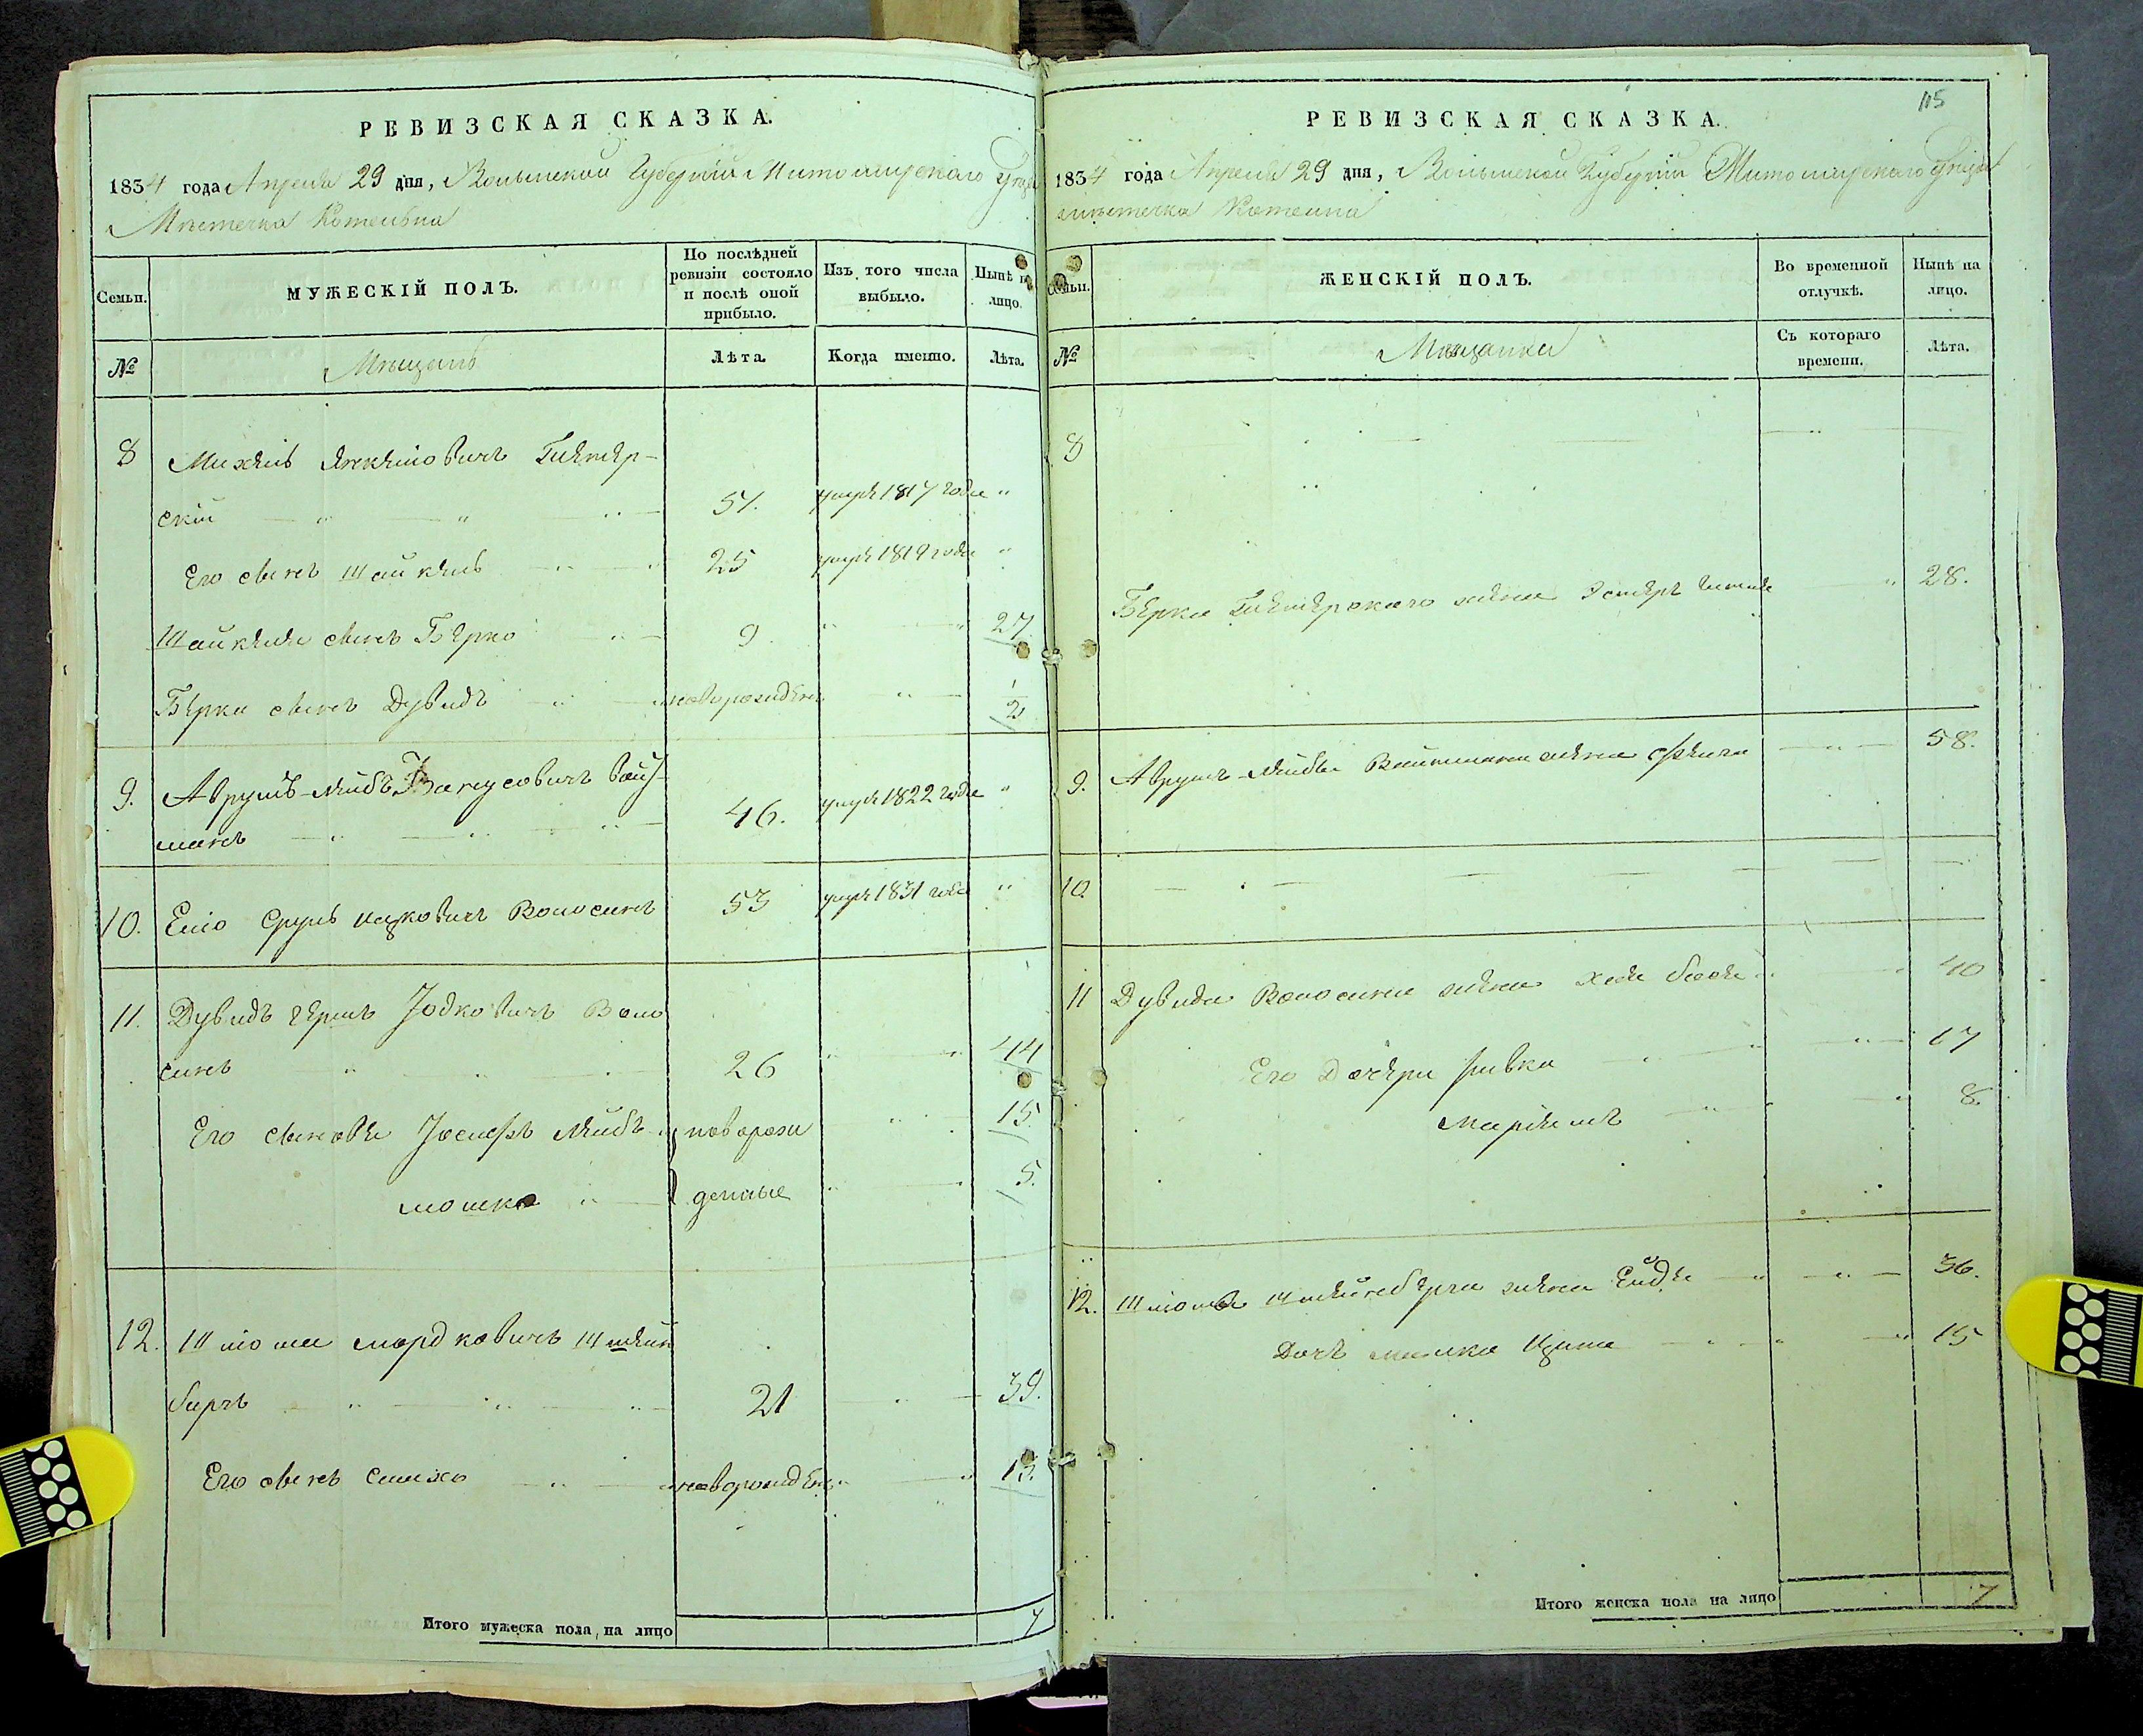 РЕВИЗСКАЯ СКАЗКА.
1834 года Апреля 29 дня, Волынской Губернiи Житомирскаго Уезда
Мѣстечка Котельна
Семьи.
МУЖЕСКІЙ ПОЛЪ.
По послѣдней ревизіи состояло и послѣ оной прибыло.
Изъ того числа выбыло.
Нынѣ на лицо.
№
Мѣщанъ
Лѣта.
Когда именно.
Лѣта.
8 Михель
скій 51. умре 1817 года "
Его сынъ Шайкель 25 умре 1819 года "
Шайкеля сынъ Берко 9. " 27
Берка сынъ Дувидъ новорожденъ " 1/2
9. Аврумъ-Лейбъ Вай
манъ 46. умре 1822 года "
10. Елiо Сруль Ицковичъ Волосинъ 53 умре 1831 года "
11. Дувидъ Гершъ Іодковичъ Воло
синъ 26 " 44
Его сыновья Іосифъ Лейбъ новорож " 15.
Мошко денные " 5.
12. Шлома Мордковичъ Штейн
бергъ 21 " 39.
Его сынъ Симхо новорожденъ " 13.
Итого мужеска пола на лицо 7
115
РЕВИЗСКАЯ СКАЗКА.
1834 года Апреля 29 дня, Волынской Губернiи Житомирскаго Уезда
мѣстечка Котельна
Семьи.
ЖЕНСКІЙ ПОЛЪ.
Во временной отлучкѣ.
Нынѣ на лицо.
№
Мѣщанки
Съ котораго времени.
Лѣта.
8
Берка жена Эстеръ " 28.
9. Аврумъ-Лейбы жена " 58.
10.
11 Дувида Волосина жена Хая Бася " 40
Его Дочери Ривка " 17
Марiемъ " 8.
12. Шлома Штейнберга жена Ейдя " 36.
Дочь " 15
Итого женска пола на лицо 7